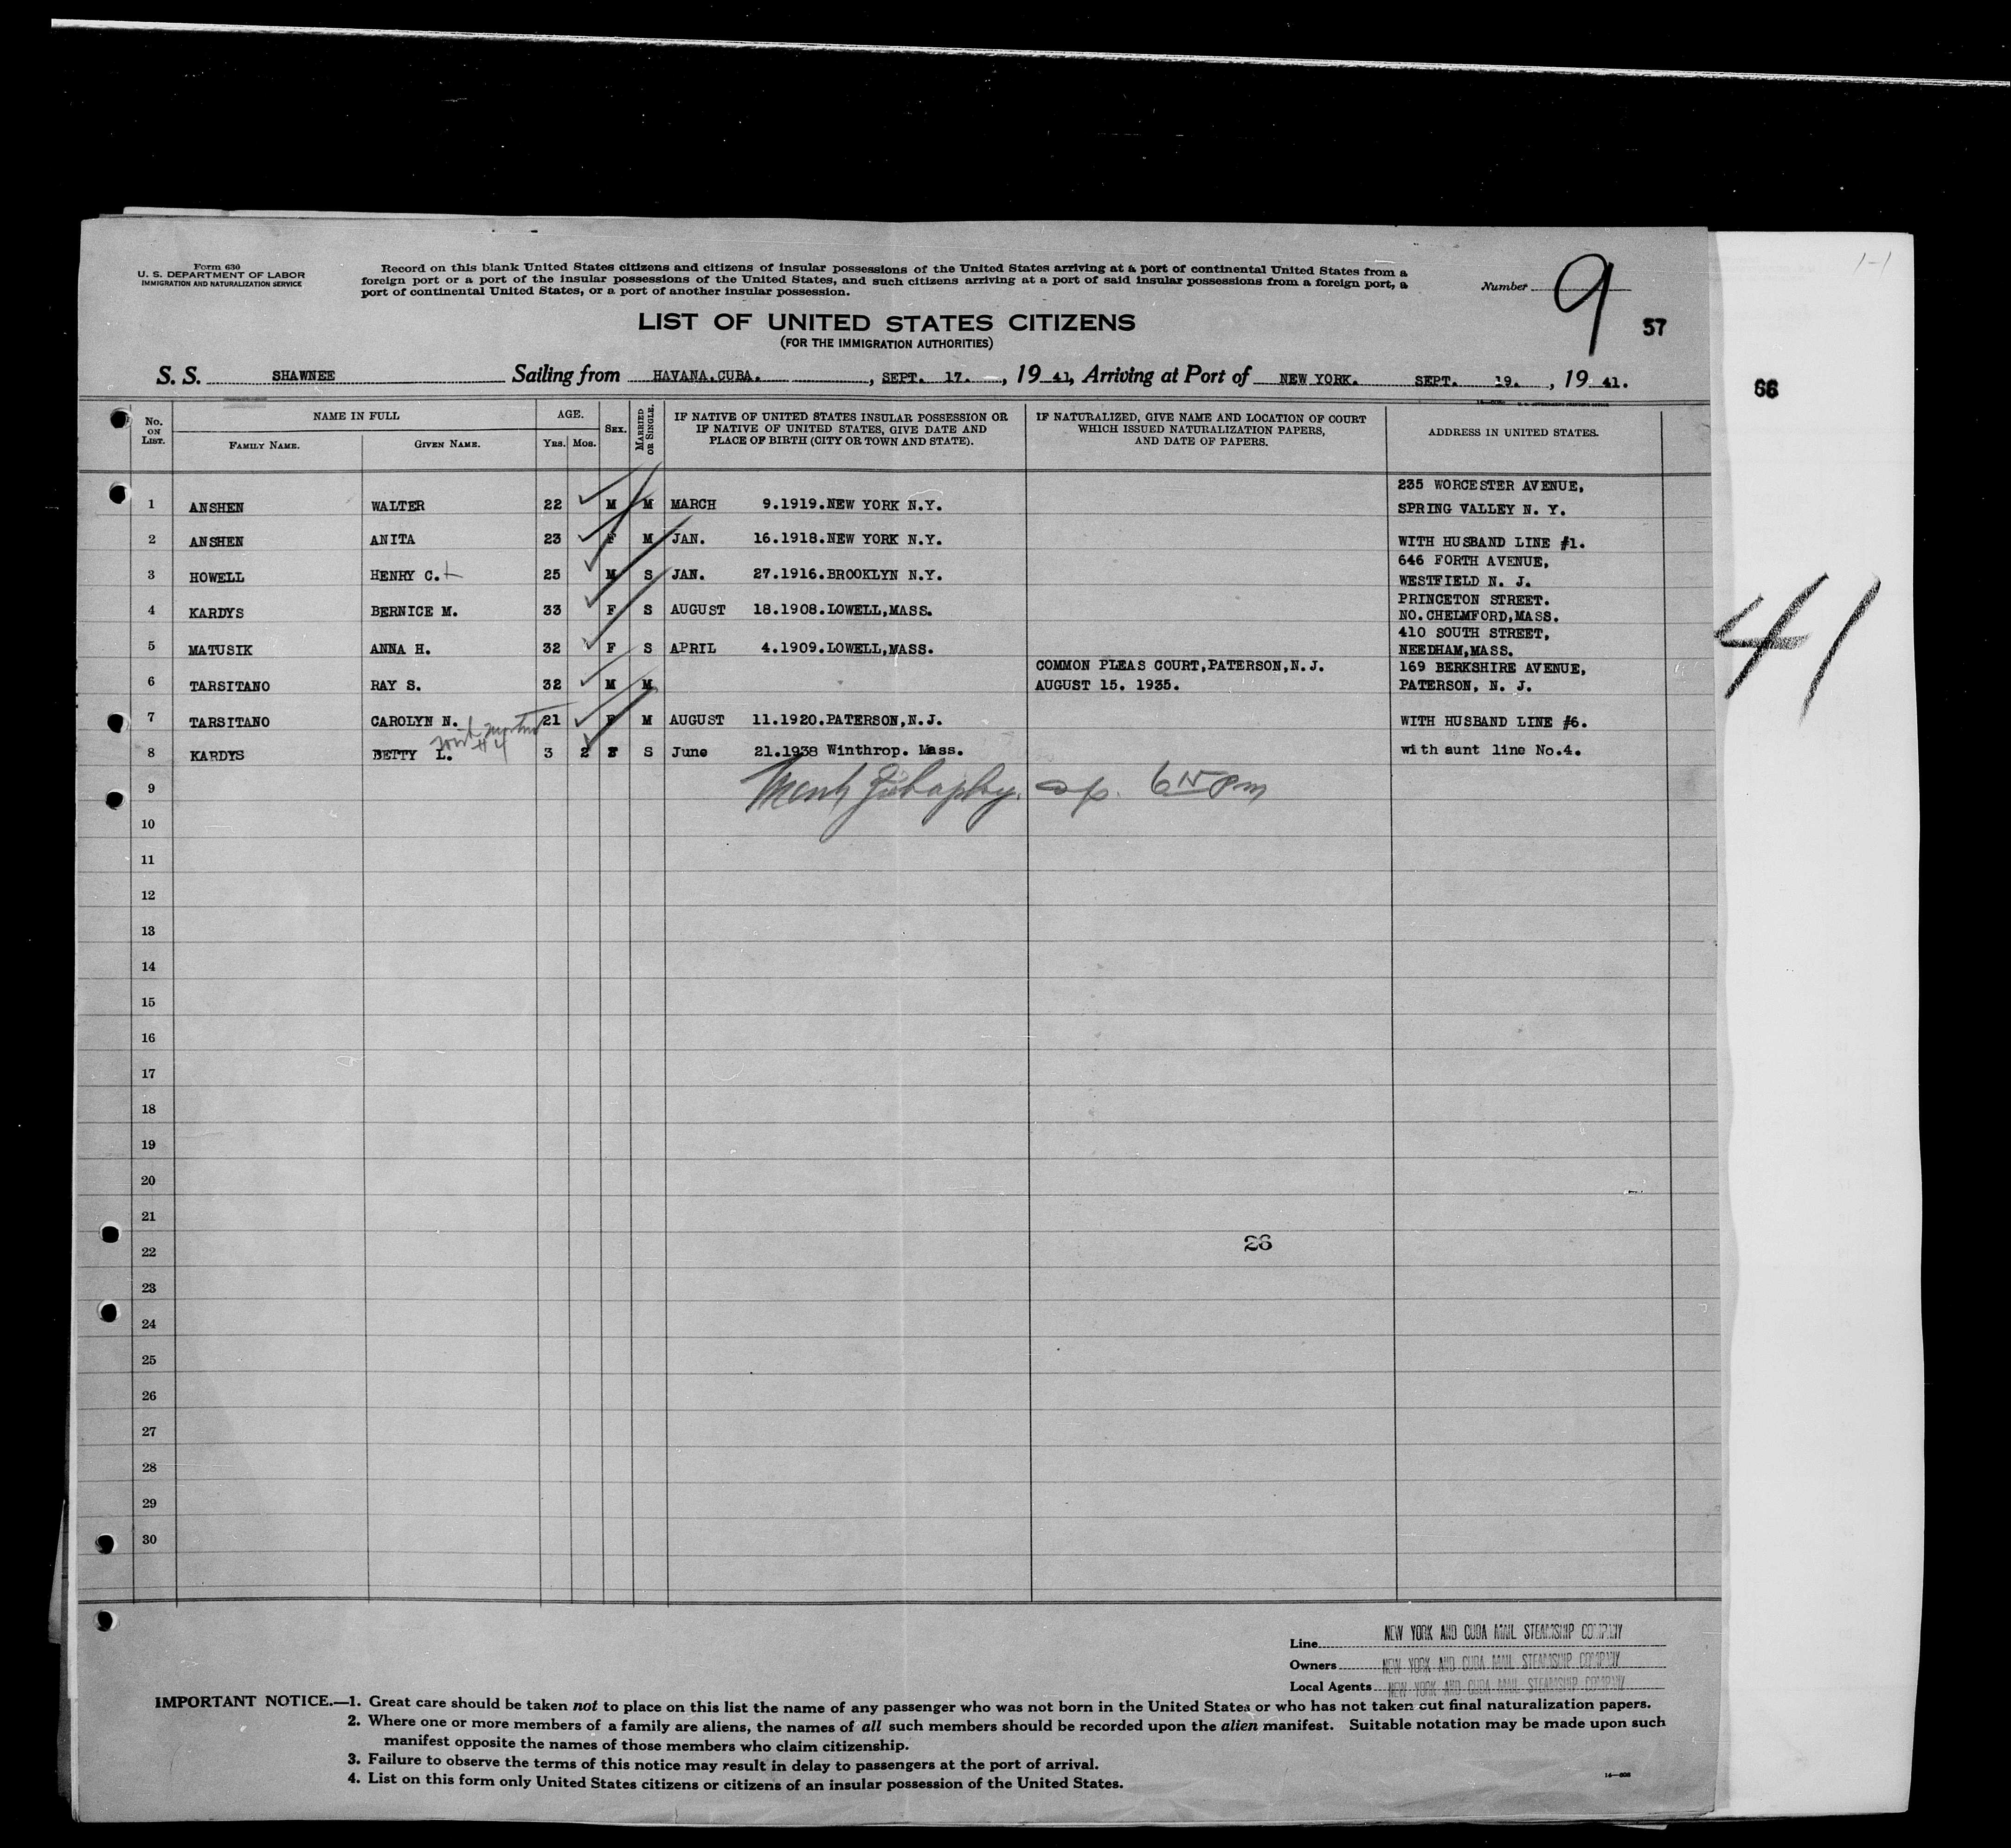 Form 630
U. S. DEPARTMENT OF LABOR
IMMIGRATION AND NATURALIZATION SERVICE
Record on this blank United States citizens and citizens of insular possessions of the United States arriving at a port of continental United States from a
foreign port or a port of the insular possessions of the United States, and such citizens arriving at a port of said insular possessions from a foreign port, a
port of continental United States, or a port of another insular possession.
Number 9
57
LIST OF UNITED STATES CITIZENS
(FOR THE IMMIGRATION AUTHORITIES)
S. S. SHAWNEE Sailing from HAVANA.CUBA. , SEPT. 17. , 19 41, Arriving at Port of NEW YORK. SEPT. 19. , 19 41.
66
No. ON LIST. NAME IN FULL AGE. SEX. MARRIED OR SINGLE. IF NATIVE OF UNITED STATES INSULAR POSSESSION OR IF NATIVE OF UNITED STATES, GIVE DATE AND PLACE OF BIRTH (CITY OR TOWN AND STATE). IF NATURALIZED, GIVE NAME AND LOCATION OF COURT WHICH ISSUED NATURALIZATION PAPERS, AND DATE OF PAPERS. ADDRESS IN UNITED STATES.
FAMILY NAME. GIVEN NAME. YRS. MOS.
235 WORCESTER AVENUE,
1 ANSHEN WALTER 22 M M MARCH 9.1919.NEW YORK N.Y. SPRING VALLEY N. Y.
2 ANSHEN ANITA 23 F M JAN. 16.1918.NEW YORK N.Y. WITH HUSBAND LINE #1.
646 FORTH AVENUE,
3 HOWELL HENRY C. 25 M S JAN. 27.1916.BROOKLYN N.Y. WESTFIELD N. J.
PRINCETON STREET.
4 KARDYS BERNICE M. 33 F S AUGUST 18.1908.LOWELL,MASS. NO.CHELMFORD,MASS.
410 SOUTH STREET,
5 MATUSIK ANNA H. 32 F S APRIL 4.1909.LOWELL,MASS. NEEDHAM,MASS.
COMMON PLEAS COURT,PATERSON,N.J. 169 BERKSHIRE AVENUE,
6 TARSITANO RAY S. 32 M M AUGUST 15. 1935. PATERSON, N. J.
7 TARSITANO CAROLYN N. 21 F M AUGUST 11.1920.PATERSON,N.J. WITH HUSBAND LINE #6.
#4
8 KARDYS BETTY L. 3 2 F S June 21.1938 Winthrop. Mass. with aunt line No.4.
9
10
11
12
13
14
15
16
17
18
19
20
21
22
26
23
24
25
26
27
28
29
30
41
Line NEW YORK AND CUBA MAIL STEAMSHIP COMPANY
Owners NEW YORK AND CUBA MAIL STEAMSHIP COMPANY
Local Agents NEW YORK AND CUBA MAIL STEAMSHIP COMPANY
IMPORTANT NOTICE.—1. Great care should be taken not to place on this list the name of any passenger who was not born in the United States or who has not taken out final naturalization papers.
2. Where one or more members of a family are aliens, the names of all such members should be recorded upon the alien manifest. Suitable notation may be made upon such
manifest opposite the names of those members who claim citizenship.
3. Failure to observe the terms of this notice may result in delay to passengers at the port of arrival.
4. List on this form only United States citizens or citizens of an insular possession of the United States.